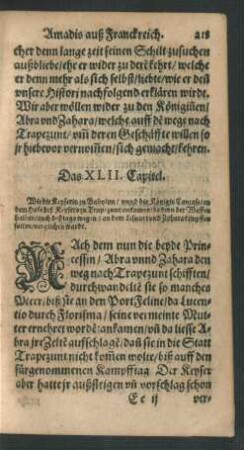 Amadis auß Franckreich. 218
cher denn lange zeit seinen Schilt zusuchen
außbliebe/ ehe er wider zu derē kehrt/ welche
er denn mehr als sich selbst/ liebte/ wie er deñ
vnsere Histori nachfolgend erklären wirdt.
Wir aber wöllen wider zu den Königiñen/
Abra vnd Zahara/ welche auff dē wege nach
Trapezunt/ vm̃ deren Geschäffte willen so
jr hiebevor vernom̃en/ sich gemacht/ kehren.
Das XLII. Capitel.
Wie die Keyserin zu Babylon/ vnnd die Königin
dem Hofe deß Keysers zu Trapezunt ankamen/ in der Waffen
halten/ auch
sollen/ verglichen wurde.
NAch dem nun die beyde Prin-
cessin/ Abra vnnd Zahara den
weg nach Trapezunt schifften/
durchwandeltē sie so manches
Meer/ biß sie an den Port Feline/ da Lucen-
tio durch Florisma/ seine vermeinte Mut-
ter ernehret wordē/ ankamen/ vñ da liesse A-
bra jre Zeltē auffschlagē/ daß sie in die Statt
Trapezunt nicht kom̃en wolte/ biß auff den
fürgenommenen Kampfftag. Der Keyser
aber hatte jr außsteigen vñ vorschlag schon
Ee ij ver-